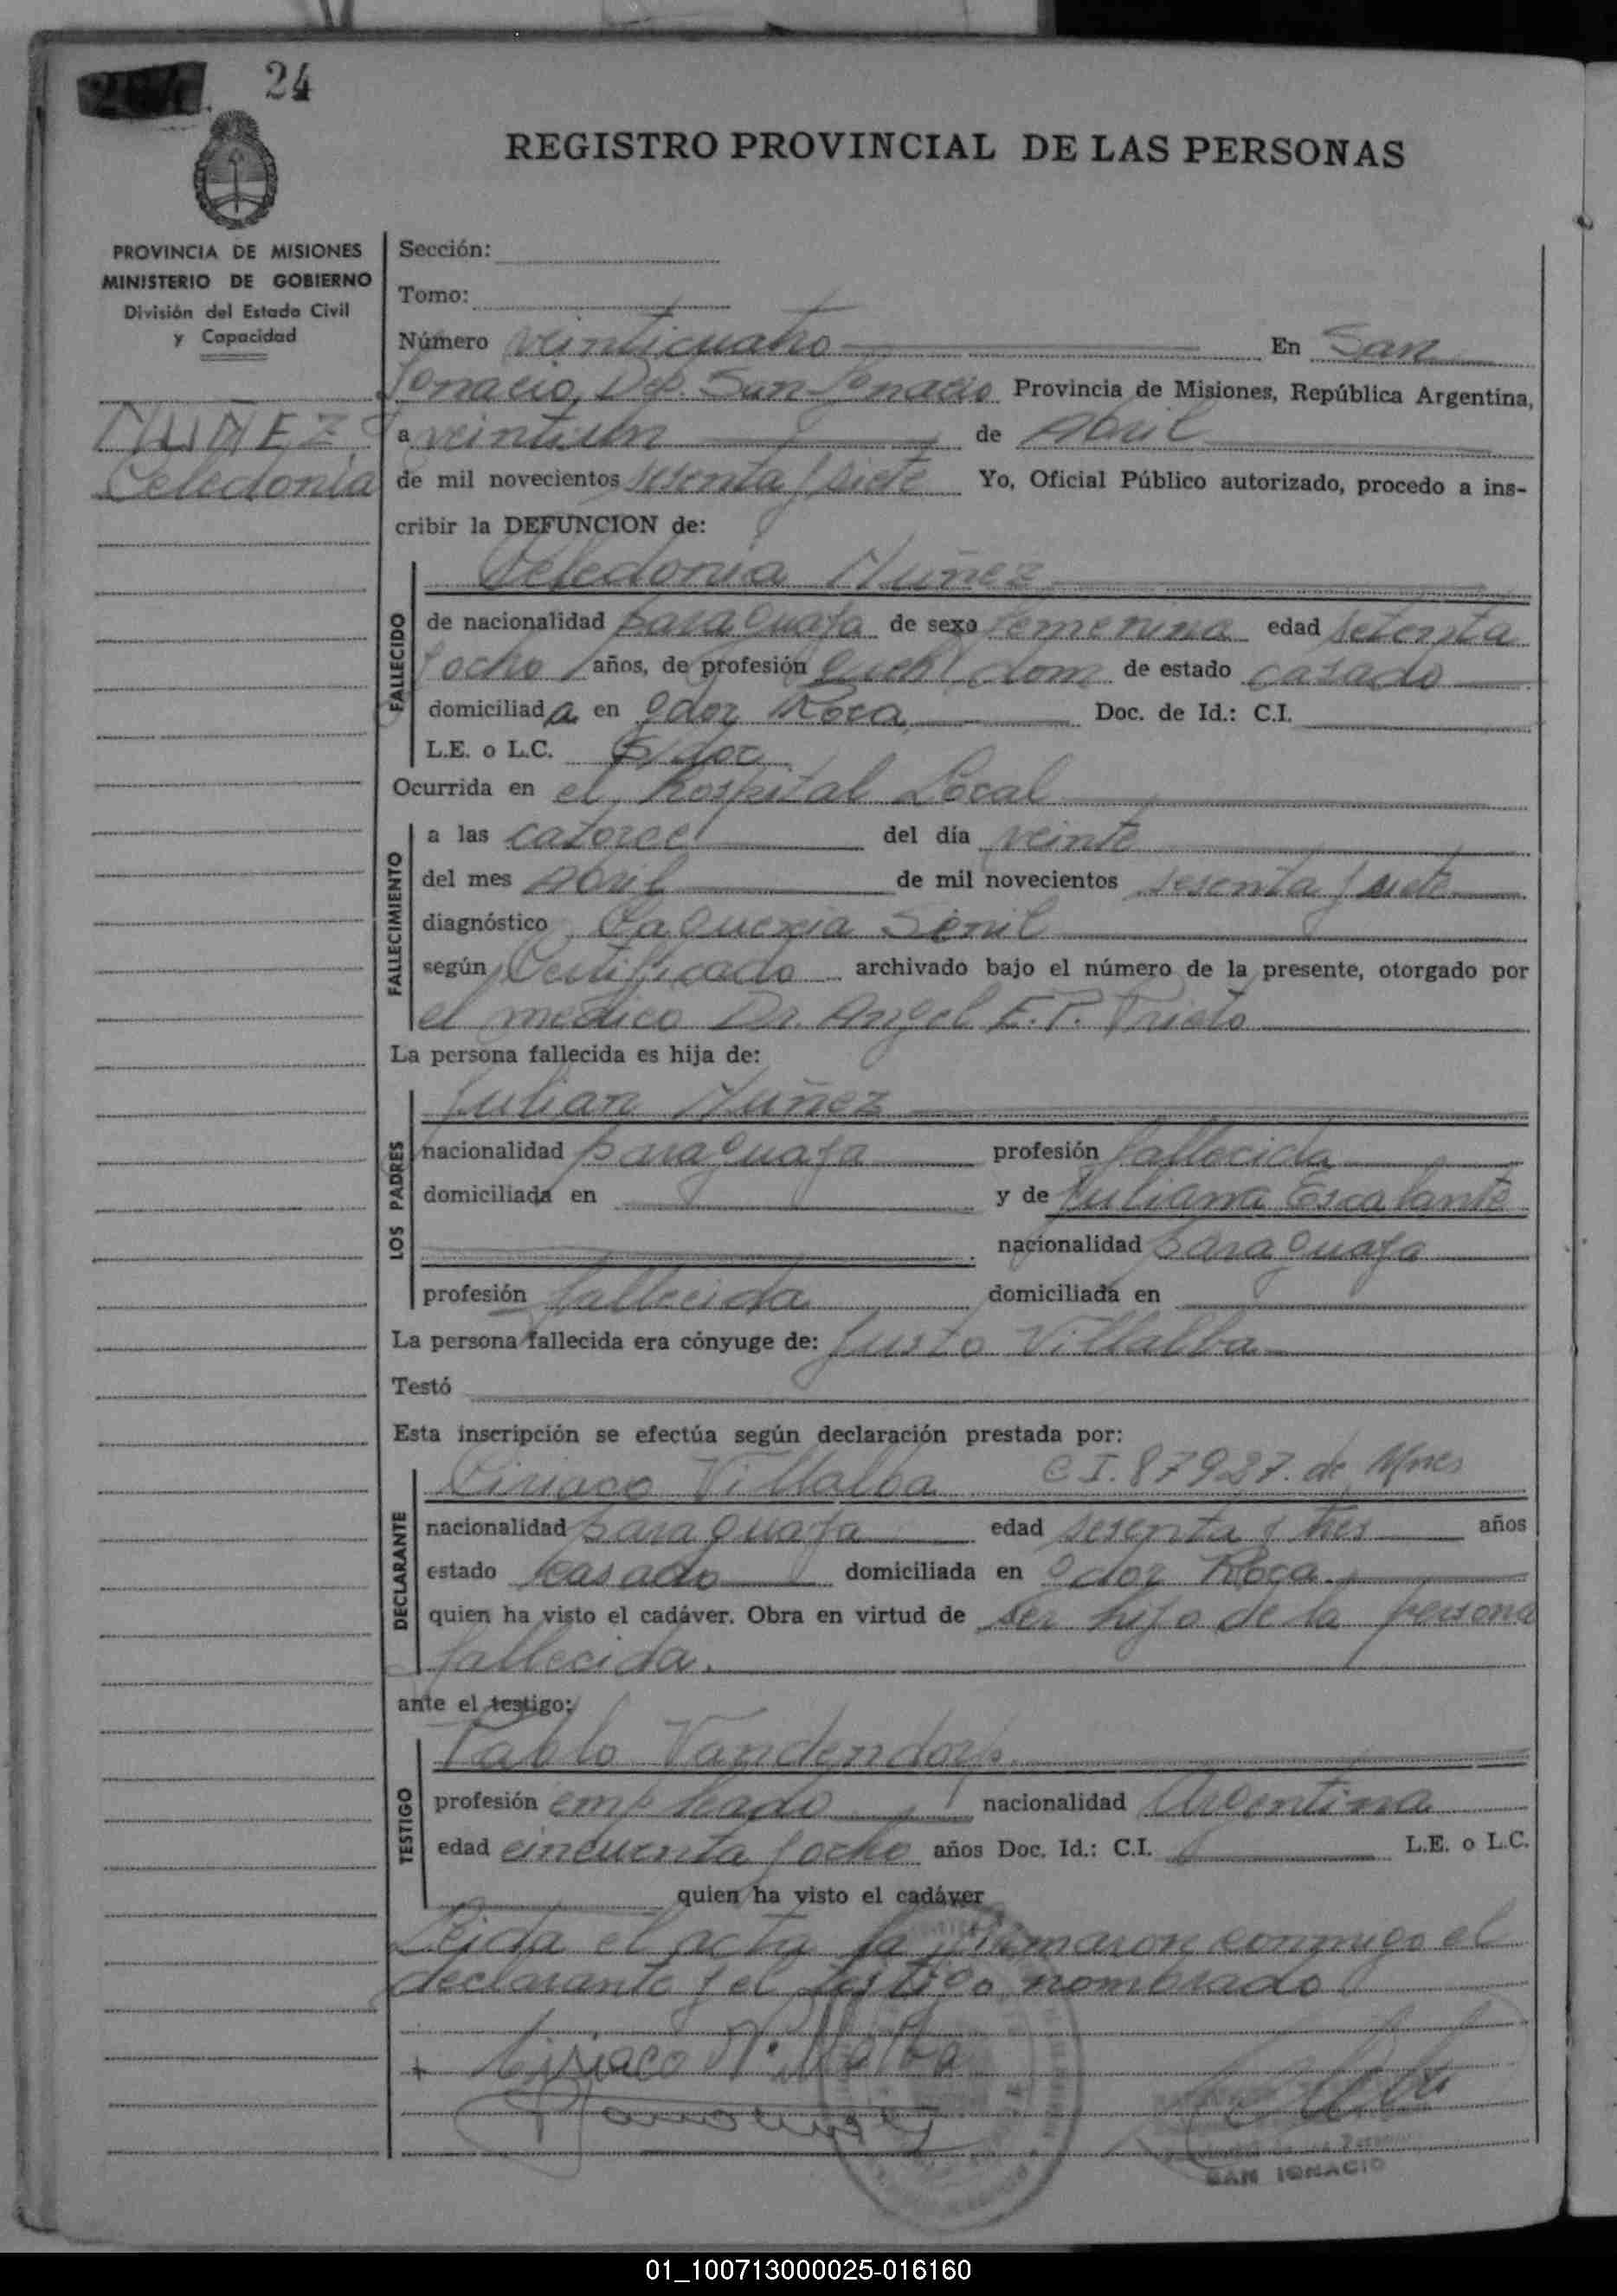 24
REGISTRO PROVINCIAL DE LAS PERSONAS
PROVINCIA DE MISIONES
MINISTERIO DE GOBIERNO
División del Estado Civil
y Capacidad
NUÑEZ
Celedonia
Sección:
Tomo:
Número veinticuatro En San
Ignacio, Dep. San Ignacio Provincia de Misiones, República Argentina,
a veintiún de Abril
de mil novecientos sesenta y siete Yo, Oficial Público autorizado, procedo a ins-
cribir la DEFUNCION de:
Celedonia Nuñez
FALLECIDO
de nacionalidad paraguaya de sexo femenino edad setenta
y ocho años, de profesión queh dom de estado casado
domiciliada en Gdor Roca Doc. de Id.: C.I.
L.E. o L.C. S/doc
Ocurrida en el hospital Local
FALLECIMIENTO
a las catorce del día veinte
del mes Abril de mil novecientos sesenta y siete
diagnóstico Caquexia Senil
según Certificado archivado bajo el número de la presente, otorgado por
el medico Dr. Angel E. P. Prieto
La persona fallecida es hija de:
LOS PADRES
Julian Nuñez
nacionalidad paraguaya profesión fallecida
domiciliada en y de Juliana Escalante
nacionalidad paraguaya
profesión fallecida domiciliada en
La persona fallecida era cónyuge de: Justo Villalba
Testó
Esta inscripción se efectúa según declaración prestada por:
DECLARANTE
Ciriaco Villalba CI. 87927. de Mnes
nacionalidad paraguaya edad sesenta y tres años
estado casado domiciliada en Gdor Roca
quien ha visto el cadáver. Obra en virtud de ser hijo de la persona
fallecida.
ante el testigo:
TESTIGO
Pablo Vandendorp
profesión empleado nacionalidad Argentina
edad cincuenta y ocho años Doc. Id.: C.I. L.E. o L.C.
quien ha visto el cadáver
Leida el acta la firmaron conmigo el
declarante y el testigo nombrado
+ Ciriaco Villalba
SAN IGNACIO
01_100713000025-016160